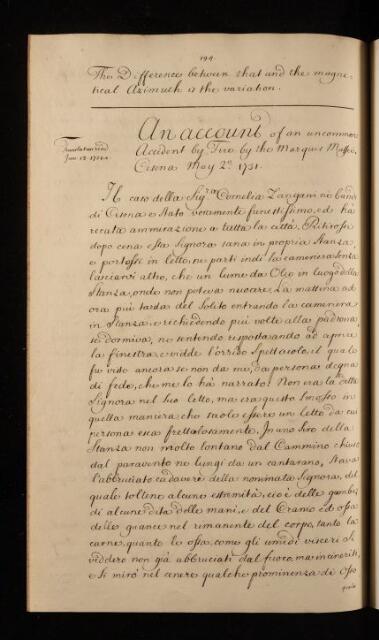 194
The Difference between that and the magne-
tical Azimuth is the variation.
An account of an uncommon
Accident by Fire by the Marquis Maffei,
Cesena May 2.ᵈ 1731.
Translation read
Jan. 13. 1731.
Il caso della Sig.ʳᵃ Cornelia Zangari né Bandi
di Cesena è stato veramente funestissimo, ed ha
recata ammirazione a tutta la città. Ritirossi
dopo cena essa Signora sana in propria Stanza,
e portossi in letto, ne parti indi la cameriera senza
lasciarvi altro, che un lume da Olio in luogo della
Stanza, onde non poteva nuocere. La mattina ad
ora piú tarda del Solito entrando la cameriera
in Stanza, e richiedendo piú volte alla padrona,
se dormiva, ne sentendo risposta andò ad aprire
la finestra, e vidde l'orrido Spettacolo, il quale
fu visto ancora se non da me, da persona degna
di fede, che me lo há narrato. Non era la detta
Signora nel suo letto, ma era questo smosso in
quella maniera, che suole essere un letto da cui
persona esca frettolosamente. In uno Siro della
Stanza non molto lontano dal Cammino chiuso
dal paravento ne lungi da un cantarano, Stava
l'abbruciato cadavere della nominata Signora, del
quale toltene alcune estremitá, cioè delle gambe,
di alcune dita delle mani, e del Cranio ed ossa
delle guance nel rimanente del corpo, tanto la
carne, quanto le ossa, come gli umidi visceri si
viddero non giá abbruciati dal fuoco, ma inceneriti,
e si miró nel cenere qualche prominenza di Osso